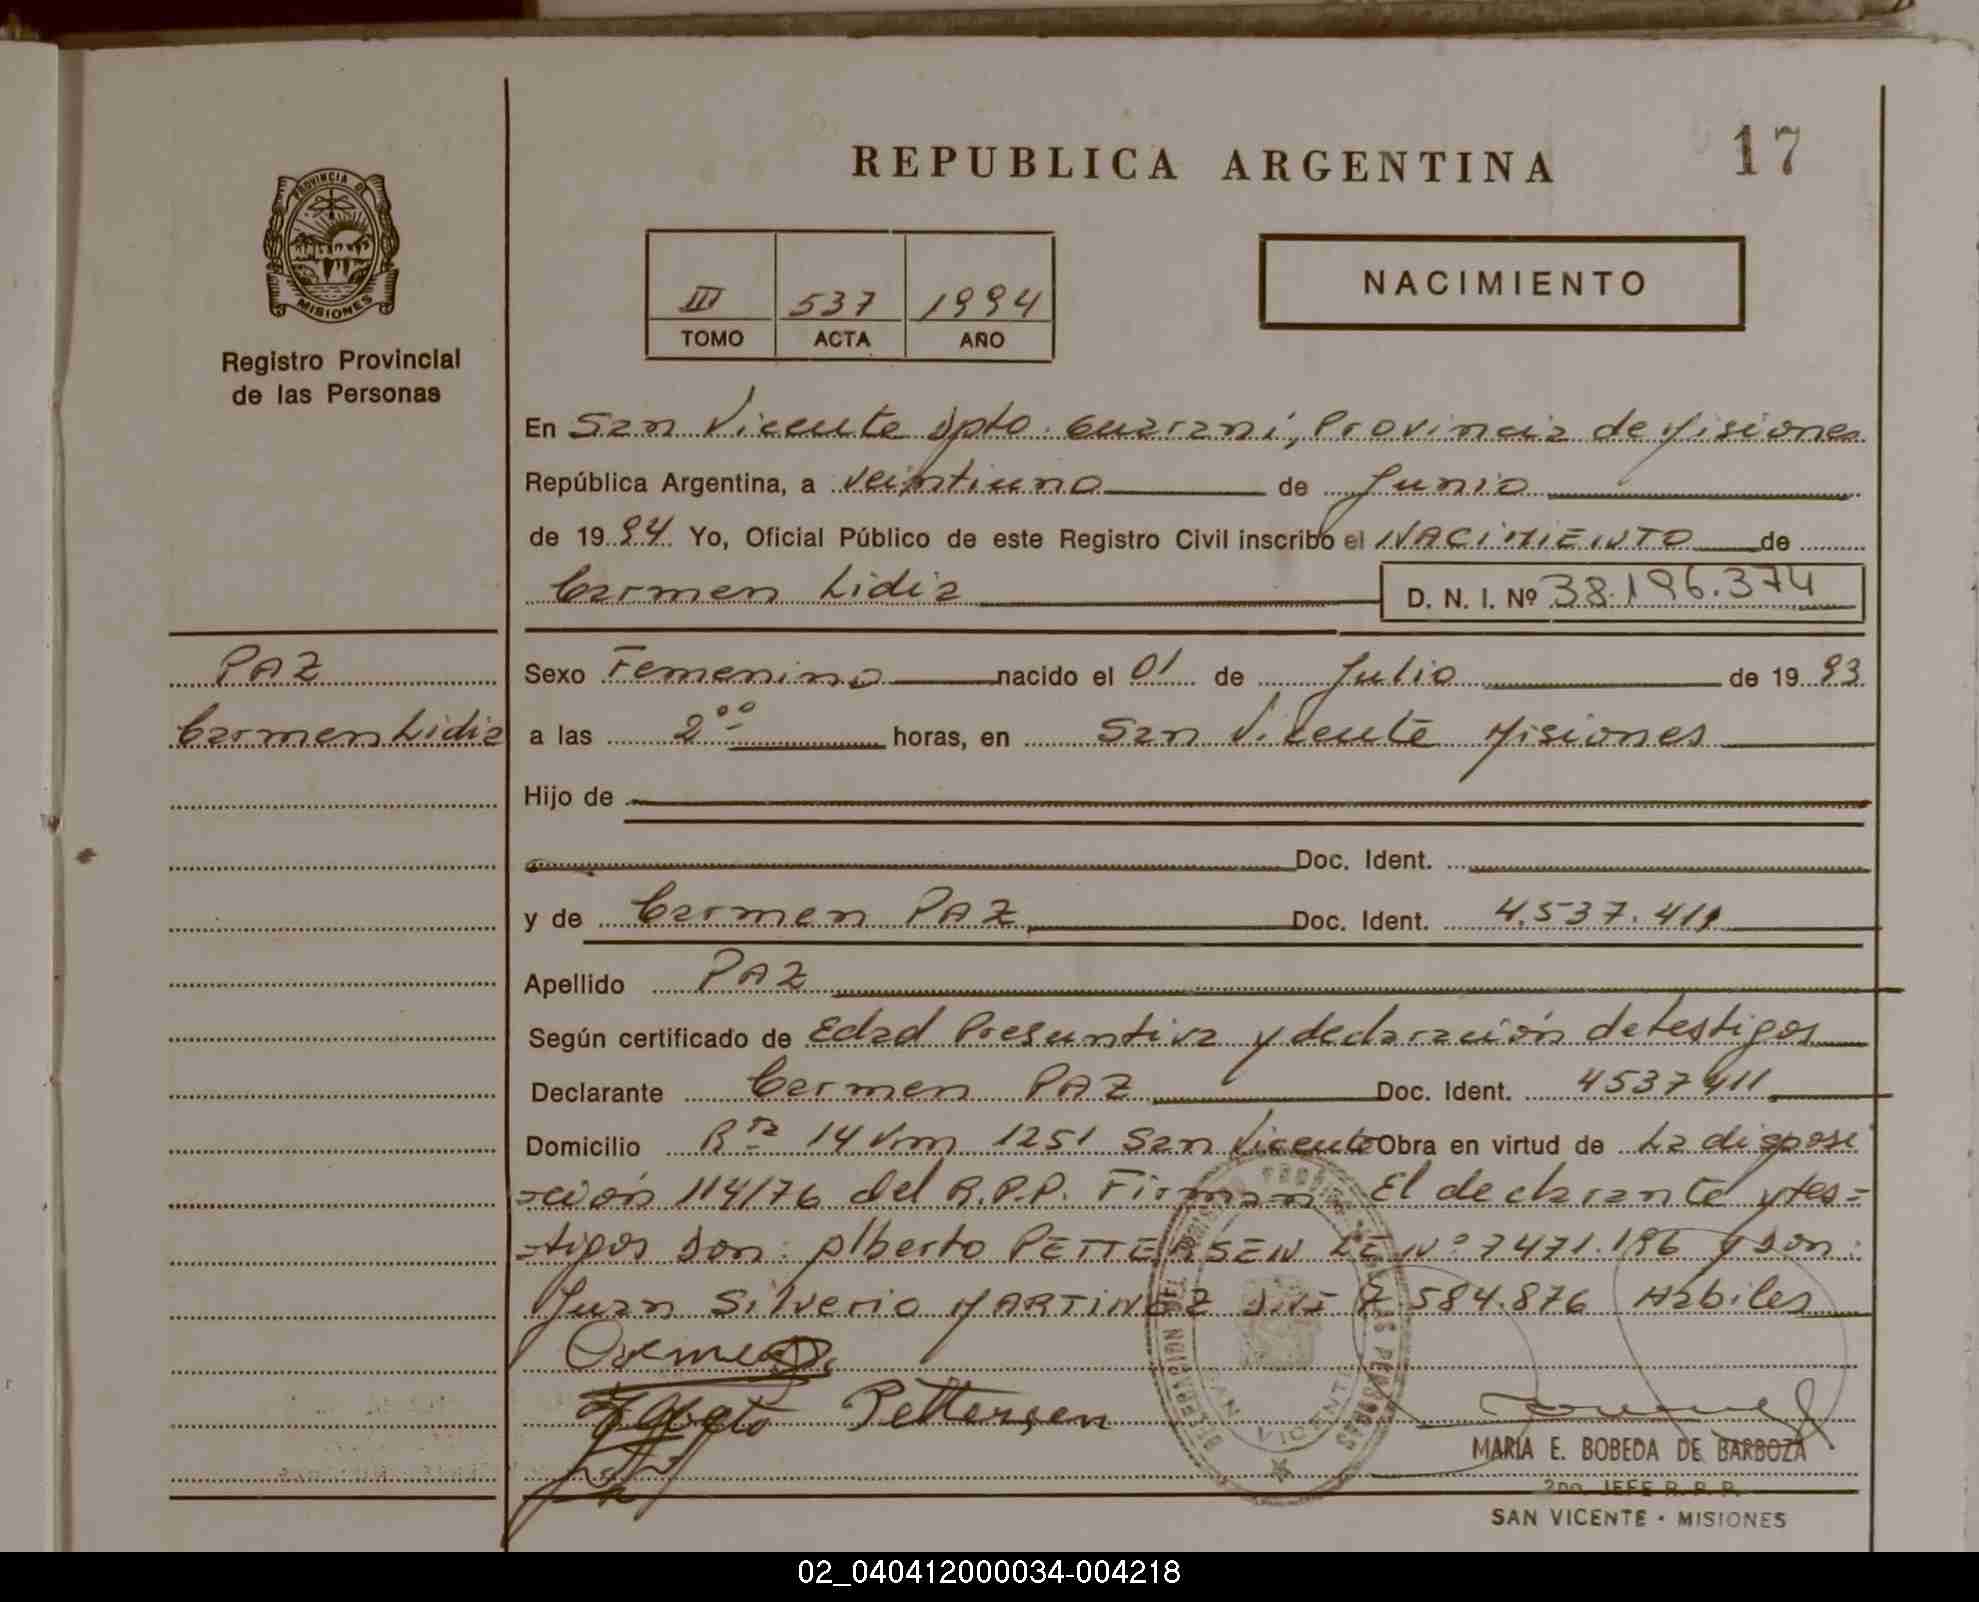 REPUBLICA ARGENTINA
17
PROVINCIA DE
MISIONES
Registro Provincial
de las Personas
III 537 1994
TOMO ACTA AÑO
NACIMIENTO
En San Vicente Dpto. Guarani, Provincia de Misiones
República Argentina, a veintiuno de Junio
de 1994 Yo, Oficial Público de este Registro Civil inscribo el NACIMIENTO de
Carmen Lidia
D. N. I. Nº 38.196.374
PAZ
Carmen Lidia
Sexo Femenino nacido el 01 de Julio de 1993
a las 2°° horas, en San Vicente Misiones
Hijo de
Doc. Ident.
y de Carmen PAZ Doc. Ident. 4.537.411
Apellido PAZ
Según certificado de Edad Presuntiva y declaración de testigos
Declarante Carmen PAZ Doc. Ident. 4537411
Domicilio Rta 14 Km 1251 San Vicente Obra en virtud de La disposi
=ción 114/76 del R.P.P. Firman El declarante y tes=
=tigos Don: Alberto PETTERSEN LE Nº 7471.196 y Don:
Juan Silverio MARTINEZ DNI 7.584.876 Habiles
Pettersen
SAN VICENTE
MARIA E. BOBEDA DE BARBOZA
2DO. JEFE R. P. P.
SAN VICENTE - MISIONES
02_040412000034-004218